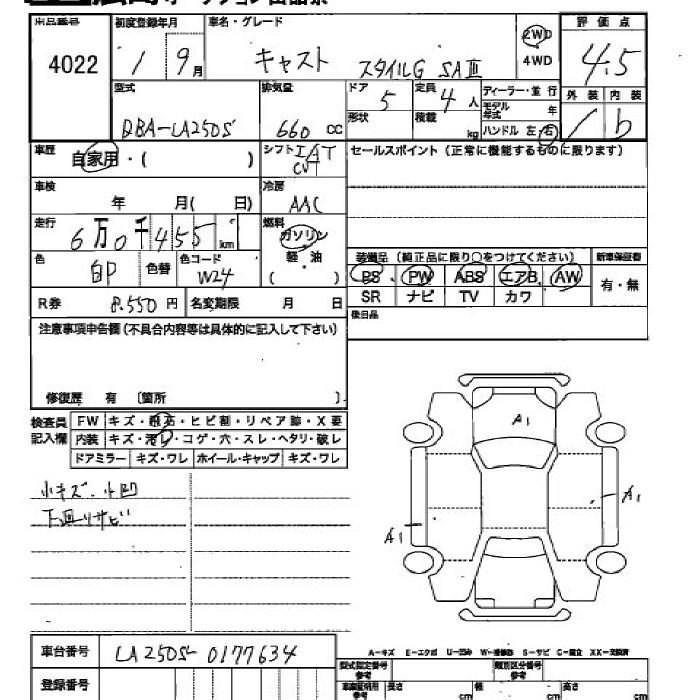 出品番号 初度登録年月 車名・グレード 2WD 4WD 評価点
4022 1 9月 キャスト スタイルG SAⅢ 4.5
型式 排気量 ドア 5 定員 4人 ディーラー・並行 外装 内装
DBA-LA250S 660 CC 形状 積載 kg モデル年式 年
ハンドル 左・右 b
車歴 自家用・( ) シフト IAT CVT セールスポイント(正常に機能するものに限ります)
車検 年 月( 日) 冷房 AAC
走行 6万0千455km 燃料 ガソリン 軽油 ( )
色 白P 色替 色コード W24
装備品(純正品に限り○をつけてください) 新車保証書
PS PW ABS エアB AW 有・無
SR ナビ TV カワ
R券 8.550円 名変期限 月 日
後日品
注意事項申告欄(不具合内容等は具体的に記入して下さい)
修復歴 有 〔箇所 〕
検査員記入欄 FW キズ・飛石・ヒビ割・リペア跡・X要
内装 キズ・汚レ・コゲ・穴・スレ・ヘタリ・破レ
ドアミラー キズ・ワレ ホイール・キャップ キズ・ワレ
小キズ・小凹
下廻りサビ
A1
A1
A1
A-キズ E-エクボ U-凹み W-補修跡 S-サビ C-腐食 XX-交換済
車台番号 LA250S-0177634
登録番号
型式指定番号 参考 類別区分番号 参考
長さ cm 幅 cm 高さ cm